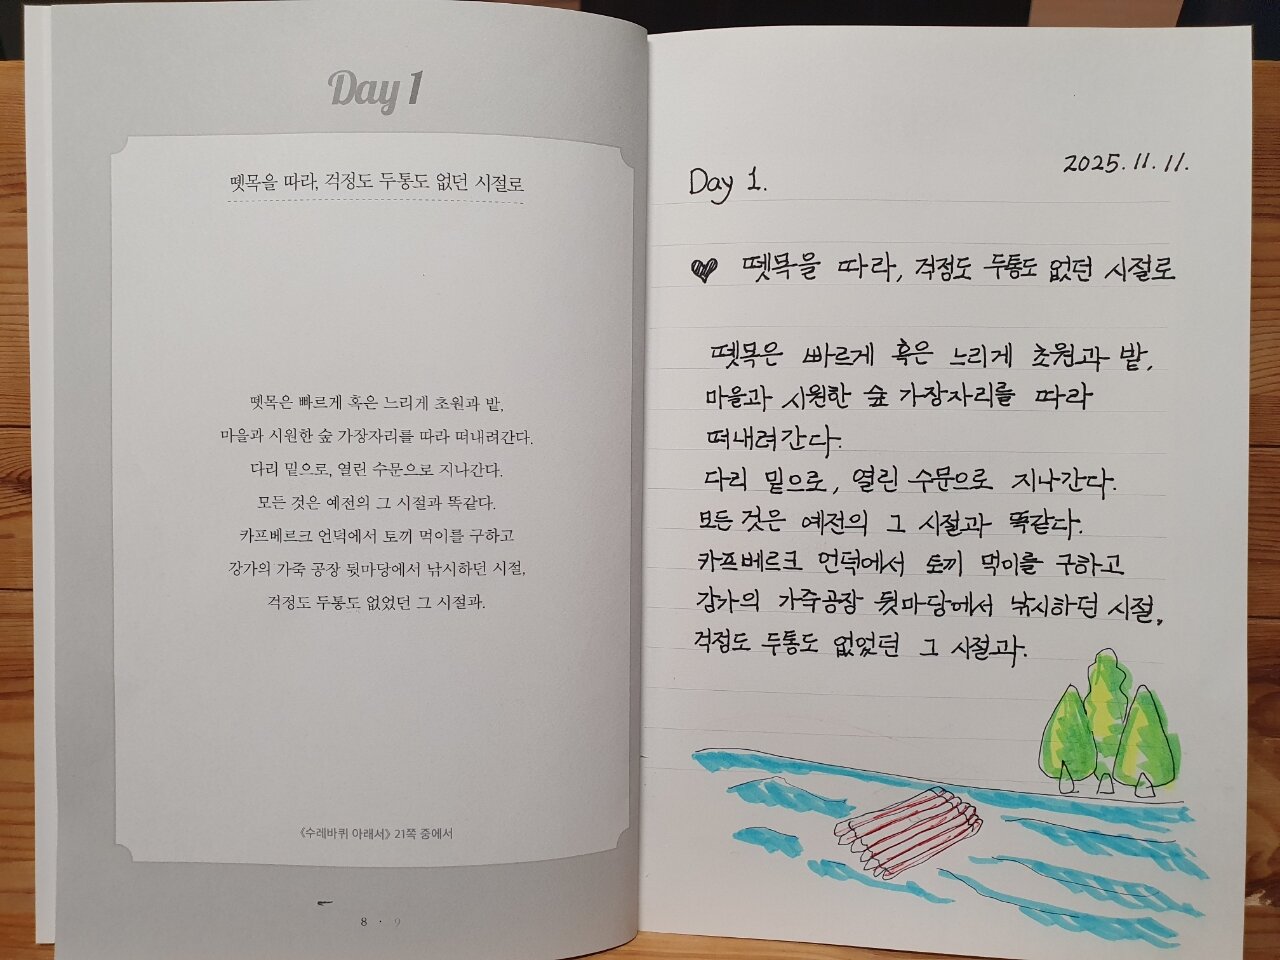 Day 1
뗏목을 따라, 걱정도 두통도 없던 시절로
뗏목은 빠르게 혹은 느리게 초원과 밭,
마을과 시원한 숲 가장자리를 따라 떠내려간다.
다리 밑으로, 열린 수문으로 지나간다.
모든 것은 예전의 그 시절과 똑같다.
카프베르크 언덕에서 토끼 먹이를 구하고
강가의 가죽 공장 뒷마당에서 낚시하던 시절,
걱정도 두통도 없었던 그 시절과.
《수레바퀴 아래서》 21쪽 중에서
8 · 9
2025. 11. 11.
Day 1.
♥ 뗏목을 따라, 걱정도 두통도 없던 시절로
뗏목은 빠르게 혹은 느리게 초원과 밭,
마을과 시원한 숲 가장자리를 따라
떠내려간다.
다리 밑으로, 열린 수문으로 지나간다.
모든 것은 예전의 그 시절과 똑같다.
카프베르크 언덕에서 토끼 먹이를 구하고
강가의 가죽공장 뒷마당에서 낚시하던 시절,
걱정도 두통도 없었던 그 시절과.